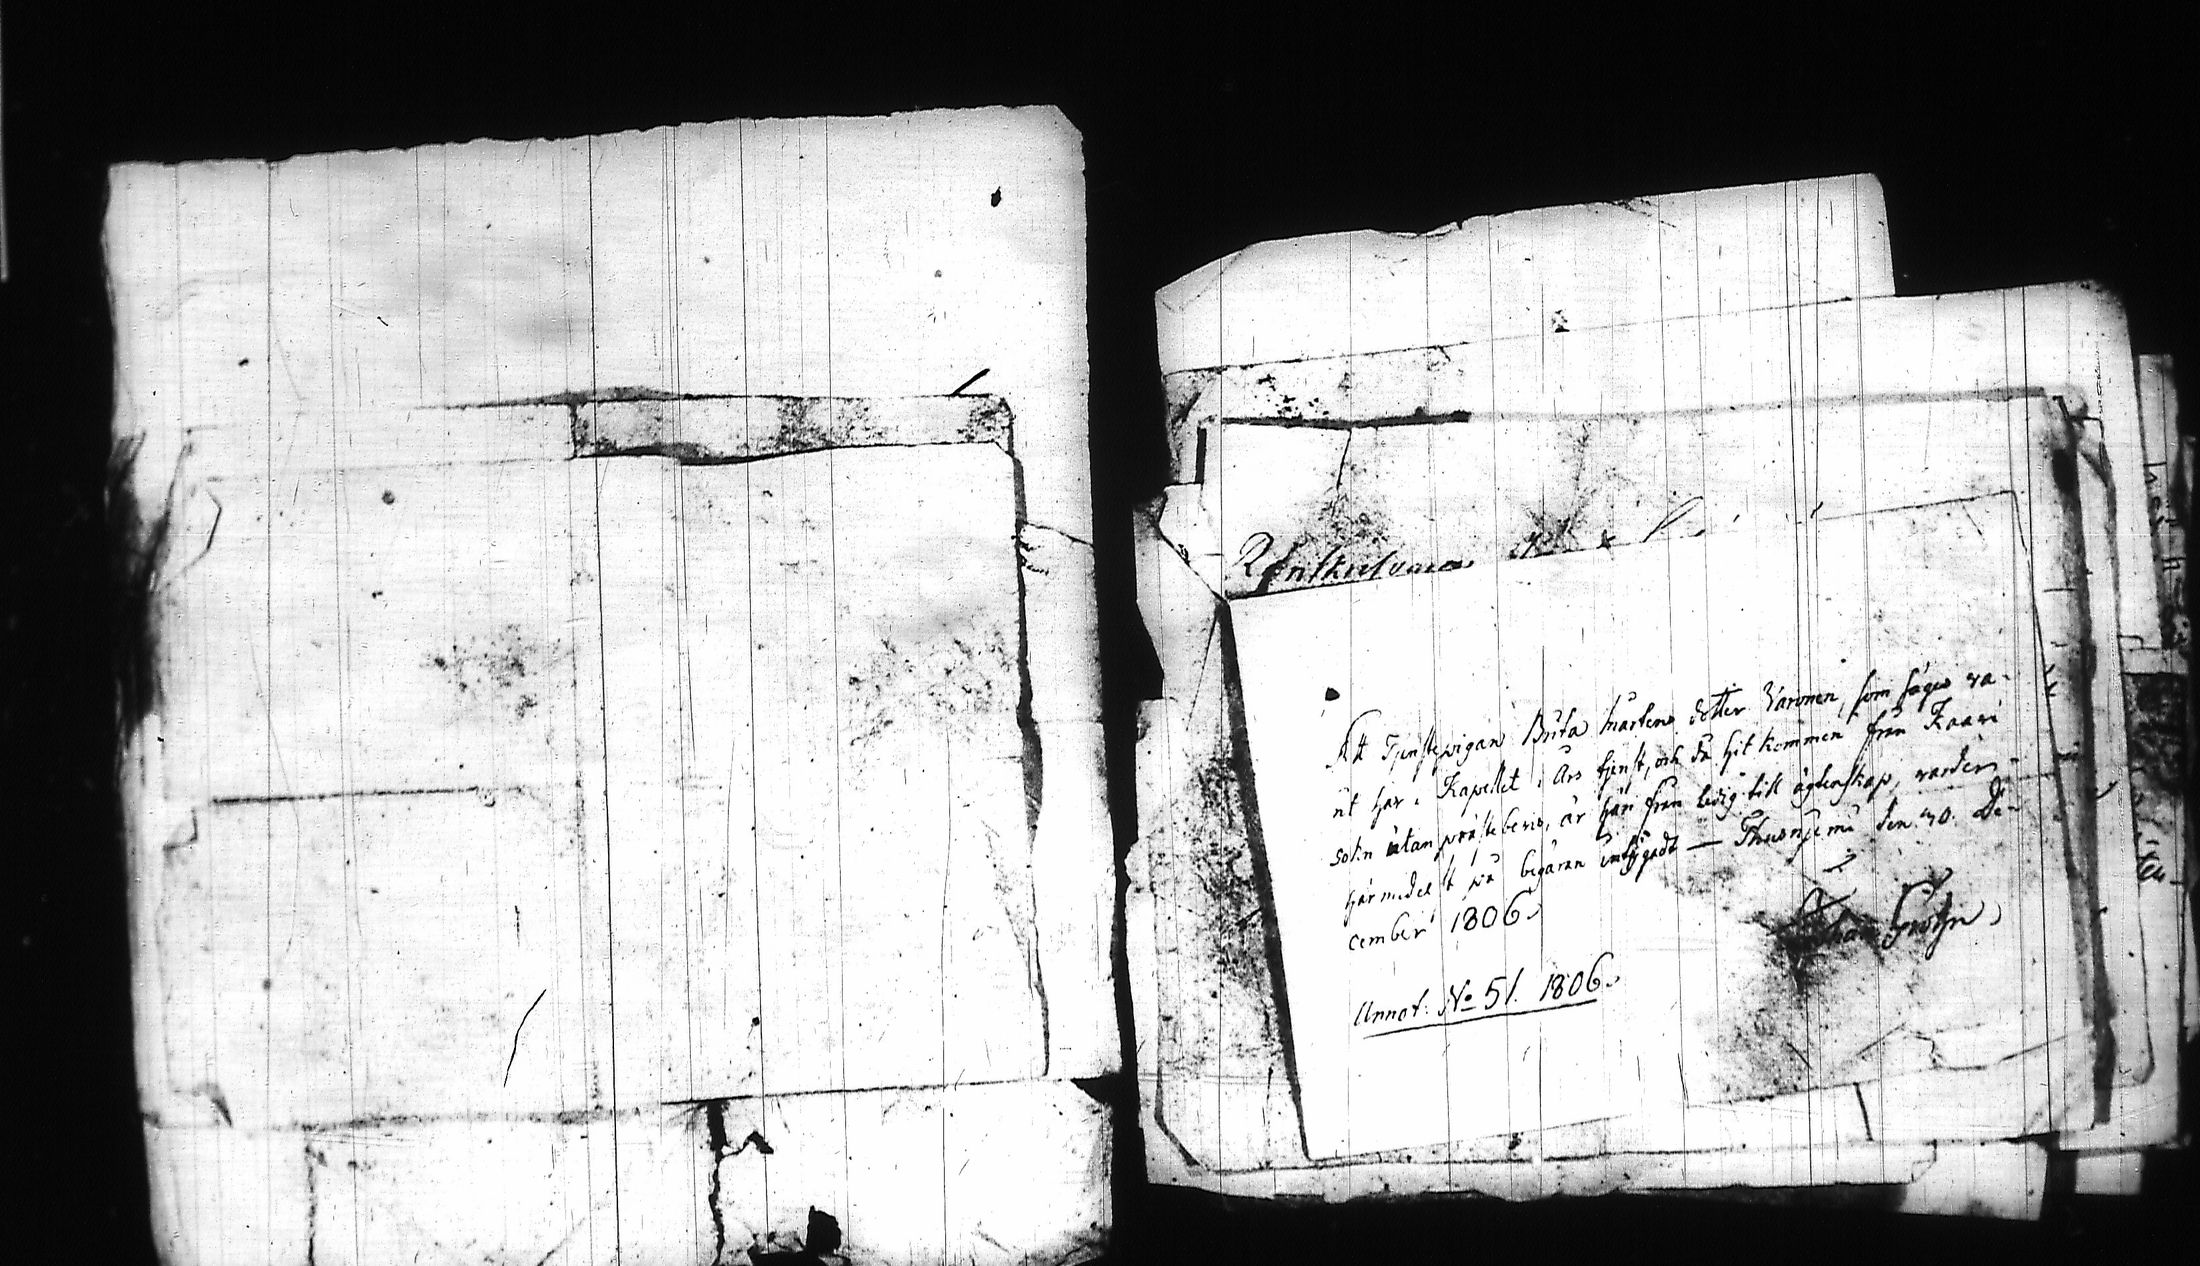 Att Tjenstepigan Brita Mårtens dotter Väronen, som säges va-
rit här i Kapellet i Års tjenst, och då hit kommen från Kaavi
sokn utan prästebevis, är här från ledig till ägtenskap, varder
härmedelst på begäran intygadt — Thusnjemi den 30. De-
cember 1806.
Johan Frosén
Annot: No 51. 1806.